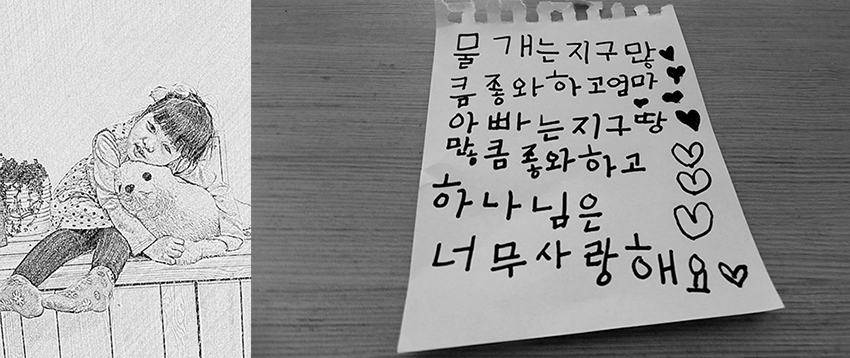 물개는지구많
큼좋와하고엄마
아빠는지구땅
많큼좋와하고
하나님은
너무사랑해요